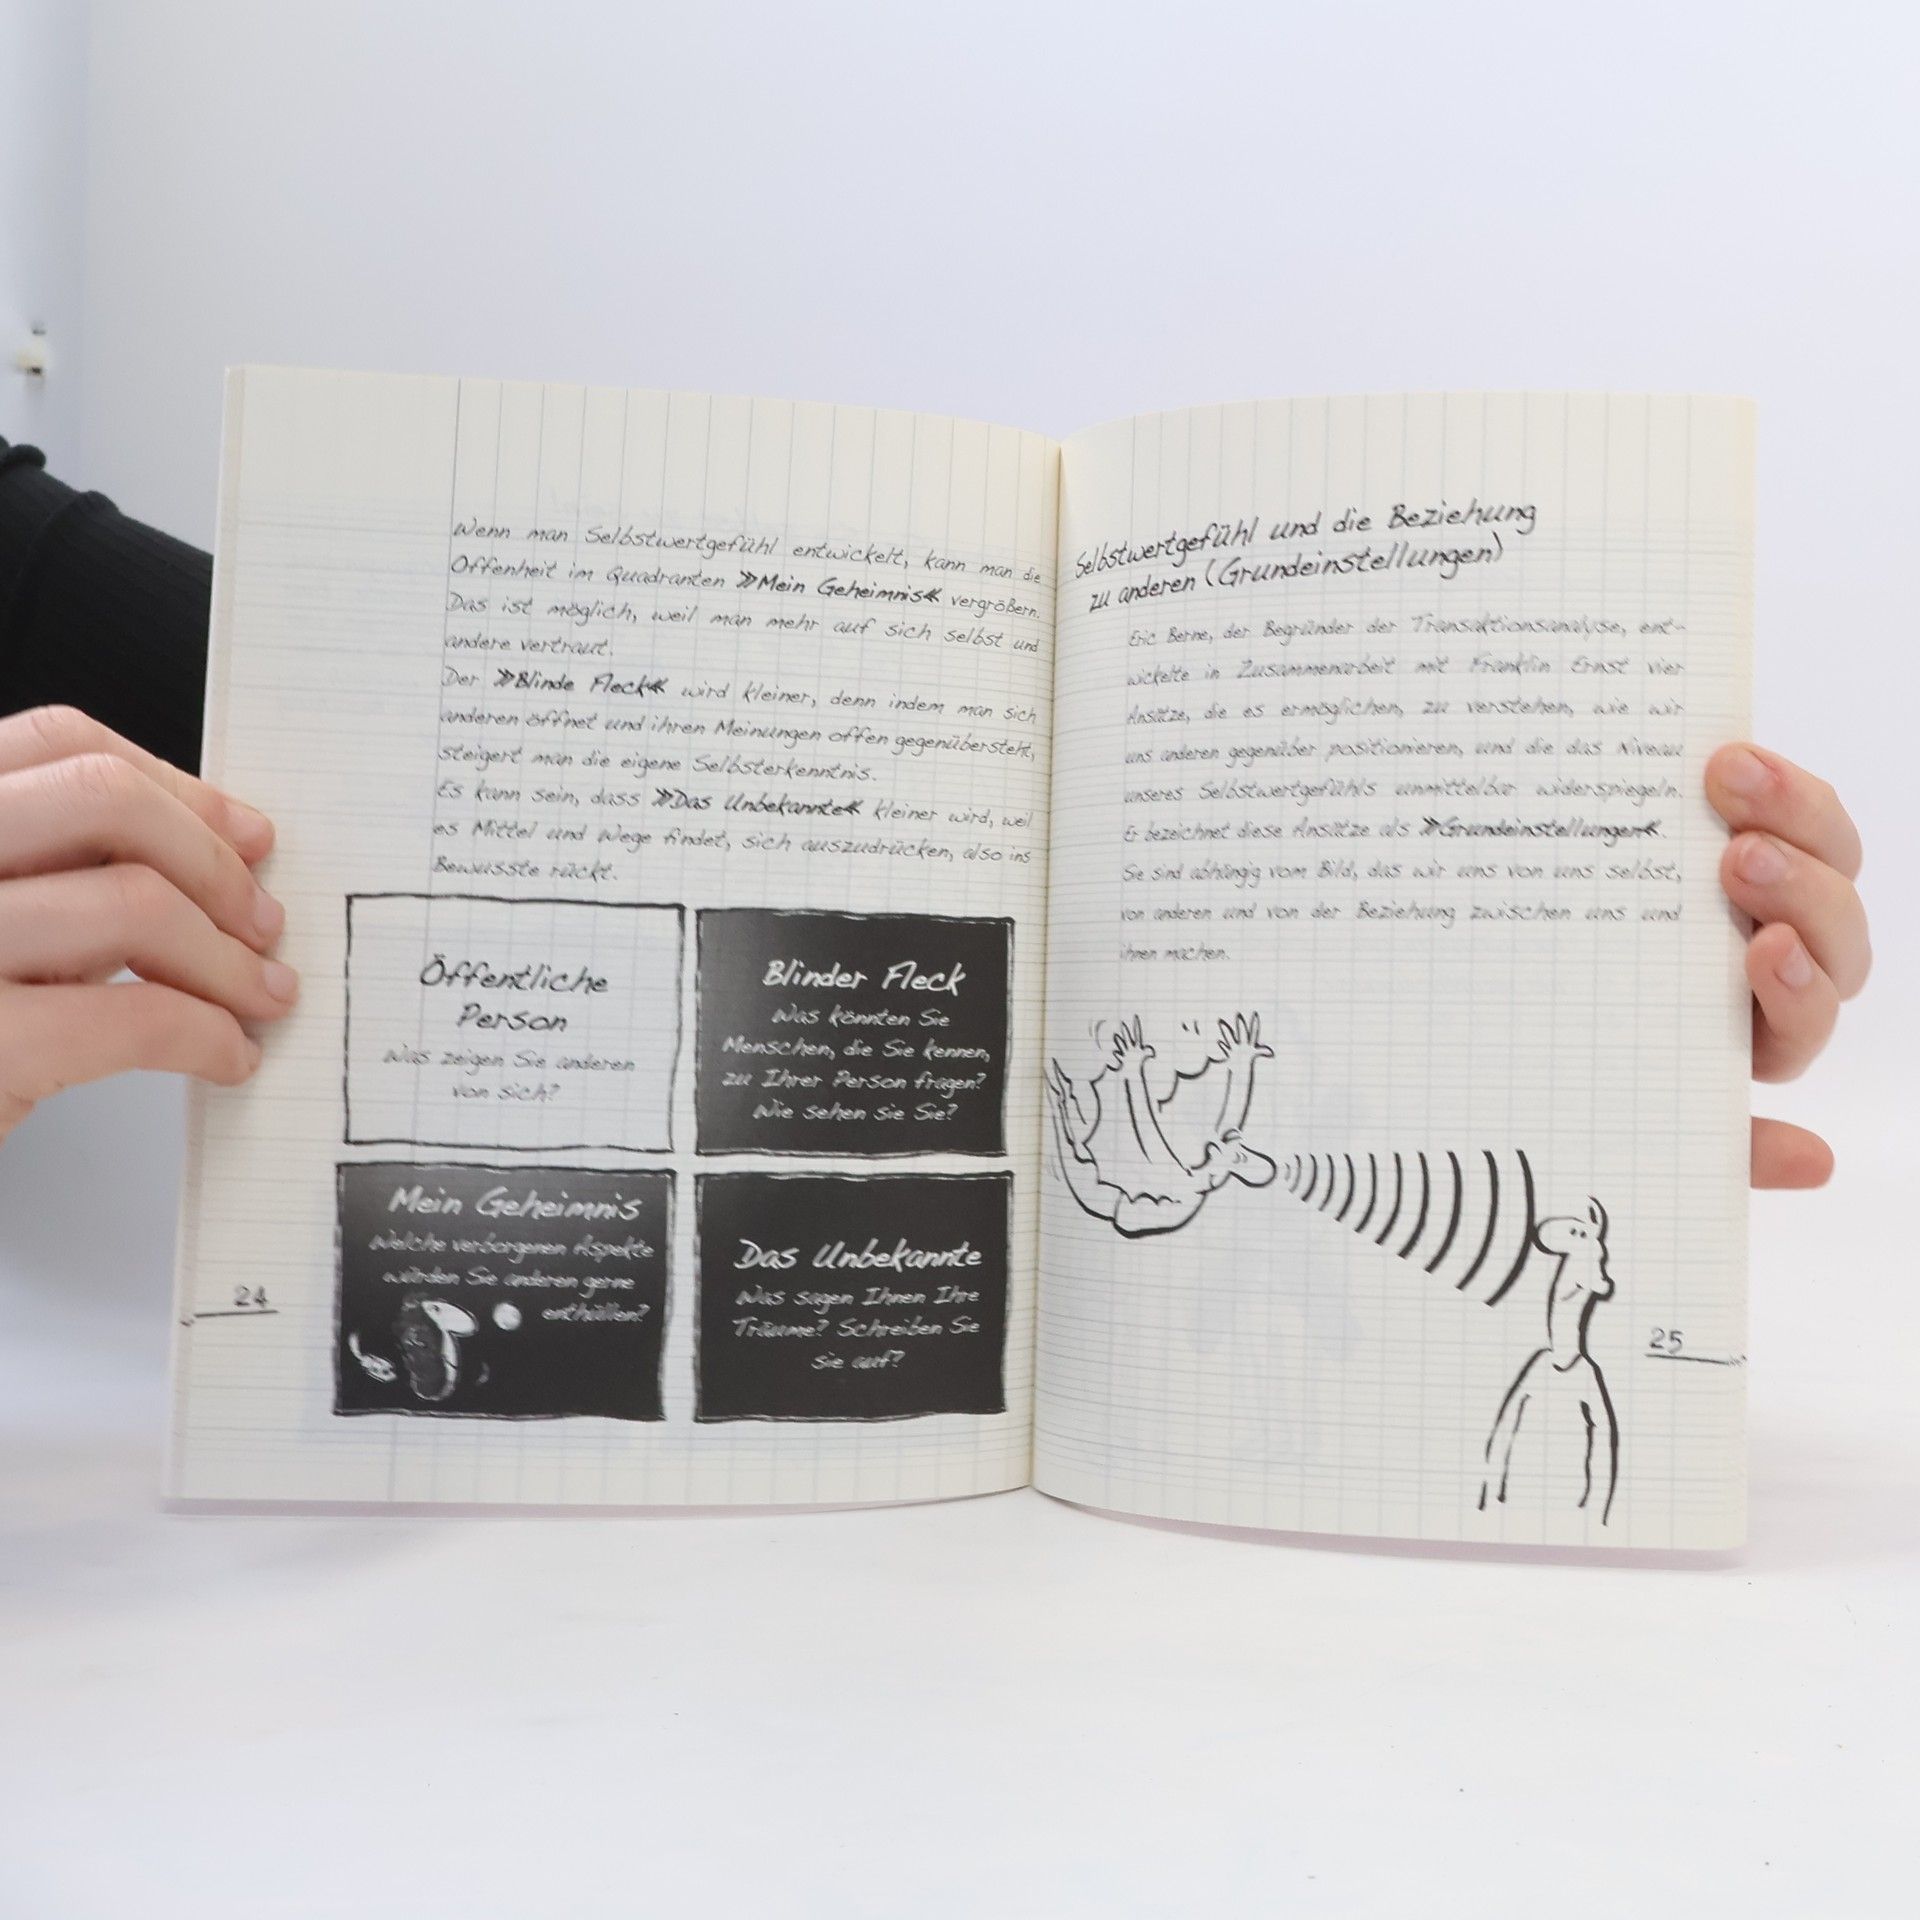 Wenn man Selbstwertgefühl entwickelt, kann man die
Offenheit im Quadranten »Mein Geheimnis« vergrößern.
Das ist möglich, weil man mehr auf sich selbst und
andere vertraut.
Der »Blinde Fleck« wird kleiner, denn indem man sich
anderen öffnet und ihren Meinungen offen gegenübersteht,
steigert man die eigene Selbsterkenntnis.
Es kann sein, dass »Das Unbekannte« kleiner wird, weil
es Mittel und Wege findet, sich auszudrücken, also ins
Bewusste rückt.
Öffentliche
Person
Was zeigen Sie anderen
von sich?
Blinder Fleck
Was könnten Sie
Menschen, die Sie kennen,
zu Ihrer Person fragen?
Wie sehen sie Sie?
Mein Geheimnis
Welche verborgenen Aspekte
würden Sie anderen gerne
enthüllen?
Das Unbekannte
Was sagen Ihnen Ihre
Träume? Schreiben Sie
sie auf?
24
Selbstwertgefühl und die Beziehung
zu anderen (Grundeinstellungen)
Eric Berne, der Begründer der Transaktionsanalyse, ent-
wickelte in Zusammenarbeit mit Franklin Ernst vier
Ansätze, die es ermöglichen, zu verstehen, wie wir
uns anderen gegenüber positionieren, und die das Niveau
unseres Selbstwertgefühls unmittelbar widerspiegeln.
Er bezeichnet diese Ansätze als »Grundeinstellungen«.
Sie sind abhängig vom Bild, das wir uns von uns selbst,
von anderen und von der Beziehung zwischen uns und
ihnen machen.
25